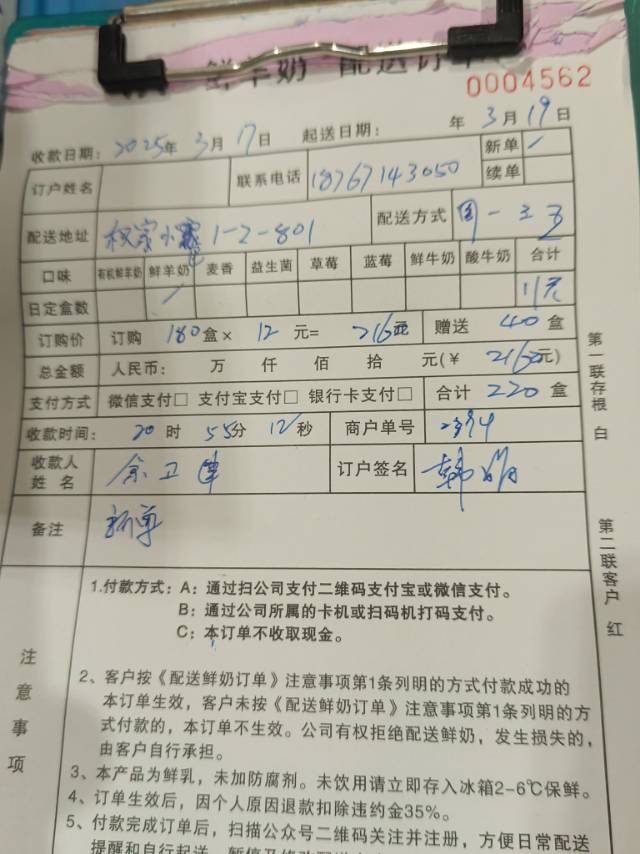 鲜羊奶 配送订单
0004562
收款日期：2025年 3月 17日 起送日期： 年 3月 19日
订户姓名 联系电话 18767143050 新单 /
续单
配送地址 1-2-801 配送方式 周一
口味 有机鲜羊奶 鲜羊奶 麦香 益生菌 草莓 蓝莓 鲜牛奶 酸牛奶 合计
日定盒数 /
订购价 订购 180盒× 12 元= 2160元 赠送 40盒
总金额 人民币： 万 仟 佰 拾 元(￥ 2160元)
支付方式 微信支付□ 支付宝支付□ 银行卡支付□ 合计 220盒
收款时间： 20时 55分 12秒 商户单号
收款人姓名 订户签名
备注 新单
第一联存根 白
第二联客户 红
注意事项
1.付款方式：A：通过扫公司支付二维码支付宝或微信支付。
B：通过公司所属的卡机或扫码机打码支付。
C：本订单不收取现金。
2、客户按《配送鲜奶订单》注意事项第1条列明的方式付款成功的
本订单生效，客户未按《配送鲜奶订单》注意事项第1条列明的方
式付款的，本订单不生效。公司有权拒绝配送鲜奶，发生损失的，
由客户自行承担。
3、本产品为鲜乳，未加防腐剂。未饮用请立即存入冰箱2-6℃保鲜。
4、订单生效后，因个人原因退款扣除违约金35%。
5、付款完成订单后，扫描公众号二维码关注并注册，方便日常配送